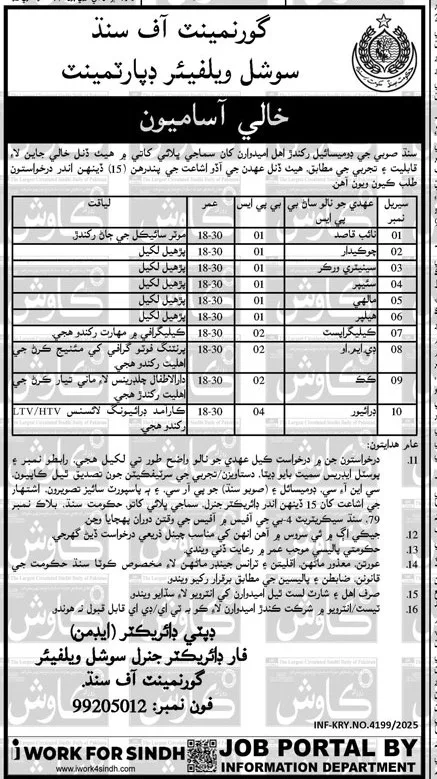 گورنمينٽ آف سنڌ
سوشل ويلفيئر ڊپارٽمينٽ
خالي آساميون
سنڌ صوبي جي ڊوميسائيل رکندڙ اهل اميدوارن کان سماجي ڀلائي کاتي ۾ هيٺ ڏنل خالي جاين لاءِ
قابليت ۽ تجربي جي مطابق. هيٺ ڏنل عهدن جي آڏو اشاعت جي پندرهن (15) ڏينهن اندر درخواستون
طلب ڪيون ويون آهن
سيريل نمبر | عهدي جو نالو ساڻ بي پي ايس | بي پي ايس | عمر | لياقت
01 | نائب قاصد | 01 | 18-30 | موٽر سائيڪل جي ڄاڻ رکندڙ
02 | چوڪيدار | 01 | 18-30 | پڙهيل لکيل
03 | سينيٽري ورڪر | 01 | 18-30 | پڙهيل لکيل
04 | سئيپر | 01 | 18-30 | پڙهيل لکيل
05 | مالهي | 01 | 18-30 | پڙهيل لکيل
06 | هيلپر | 01 | 18-30 | پڙهيل لکيل
07 | ڪيليگرافسٽ | 02 | 18-30 | ڪيليگرافي ۾ مهارت رکندو هجي.
08 | ڊي.ايم.او | 02 | 18-30 | پرنٽنگ فوٽو گرافي کي مئنيج ڪرڻ جي
اهليت رکندڙ هجي.
09 | ڪڪ | 02 | 18-30 | دارالاطفال چلڊرينس لاءِ ماني تيار ڪرڻ جي
اهليت رکندڙ هجي.
10 | ڊرائيور | 04 | 18-30 | ڪارآمد ڊرائيونگ لائسنس LTV/HTV
رکندڙ هجي.
عام هدايتون:
11. درخواستون جن ۾ درخواست ڪيل عهدي جو نالو واضح طور تي لکيل هجي. رابطو نمبر ۽
پوسٽل ايڊريس سميت بايو ڊيٽا. دستاويزن/تجربي جي سرٽيفڪيٽن جون تصديق ٿيل ڪاپيون.
سي اين آءِ سي. ڊوميسائل ۽ (صوبو سنڌ) جو پي آر سي. ۽ ٻه پاسپورٽ سائيز تصويرون. اشتهار
جي اشاعت کان 15 ڏينهن اندر ڊائريڪٽر جنرل. سماجي ڀلائي کاتو. حڪومت سنڌ. بلاڪ نمبر
79. سنڌ سيڪريٽريٽ 4-بي جي آفيس ۾ آفيس جي وقتن دوران پهچايا وڃن
12. جيڪي اڳ ۾ ئي سروس ۾ آهن انهن کي مناسب چينل ذريعي درخواست ڏيڻ گهرجي.
13. حڪومتي پاليسي موجب عمر ۾ رعايت ڏني ويندي.
14. عورتن. معذور ماڻهن. اقليتن ۽ ٽرانس جينڊر ماڻهن لاءِ مخصوص ڪوٽا سنڌ حڪومت جي
قانونن. ضابطن ۽ پاليسين جي مطابق برقرار رکيو ويندو
15. صرف اهل ۽ شارٽ لسٽ ٿيل اميدوارن کي انٽرويو لاءِ سڏايو ويندو
16. ٽيسٽ/انٽرويو ۾ شرڪت ڪندڙ اميدوارن لاءِ ڪو به ٽي اي/ڊي اي قابل قبول نه هوندو
ڊپٽي ڊائريڪٽر (ايڊمن)
فار ڊائريڪٽر جنرل سوشل ويلفيئر
گورنمينٽ آف سنڌ.
فون نمبر: 99205012
INF-KRY.NO.4199/2025
i WORK FOR SINDH
www.iwork4sindh.com
JOB PORTAL BY
INFORMATION DEPARTMENT